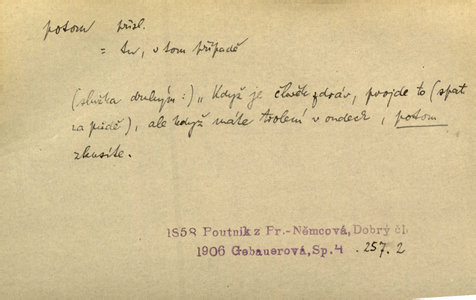 potom přísl.
= tu, v tom případě
(služka druhým:) „Když je člověk zdráv, projde to (spát
na půdě), ale když máte bolení v oudech, potom
zkusíte.
1858 Poutník z Pr.-Němcová, Dobrý čl.
1906 Gebauerová, Sp. 4 . 257. 2